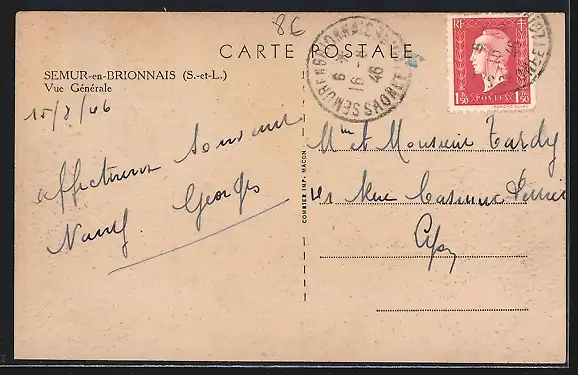 86
CARTE POSTALE
SEMUR-en-BRIONNAIS (S.-et-L.)
Vue Générale
15/8/46
affectueux souvenir
Georges
Mme et Monsieur Tardy
Rue Casimir Périer
COMBIER IMP. MACON
SEMUR EN BRIONNAIS
16 - 8
46
SAONE ET LOIRE
RF
POSTES
1F50 1F50